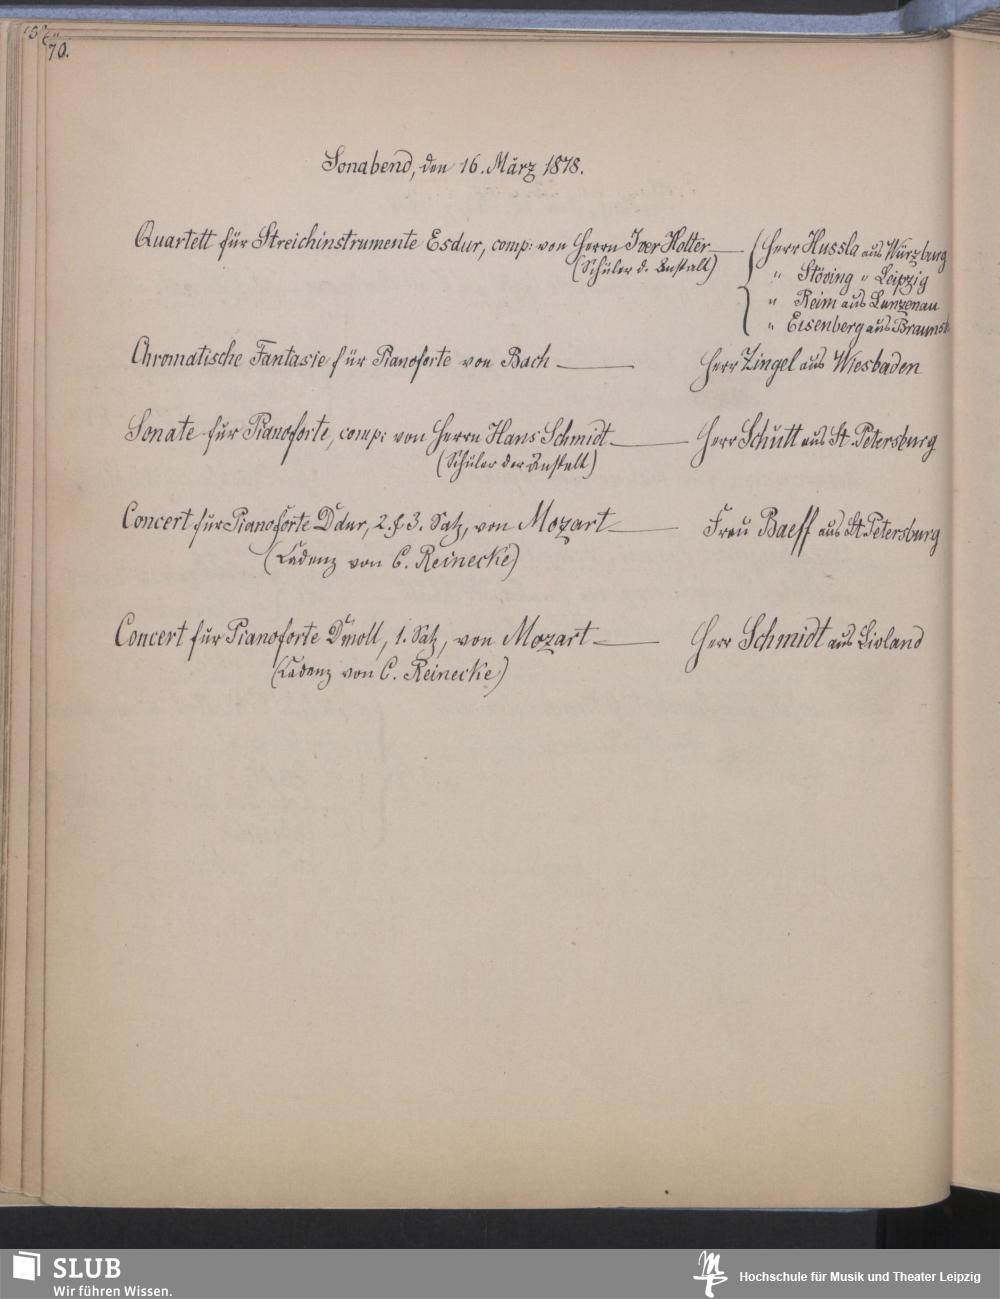 70.
Sonabend, den 16. März 1878.
Quartett für Streichinstrumente Esdur, comp: von Herrn Iver Holter — Herr Hussla aus Würzburg
(Schüler d. Anstalt) " Stöving " Leipzig
" Reim aus Lunzenau
" Eisenberg aus Braunsb
Chromatische Fantasie für Pianoforte von Bach — Herr Zingel aus Wiesbaden
Sonate für Pianoforte, comp: von Herrn Hans Schmidt — Herr Schütt aus St. Petersburg
(Schüler der Anstalt)
Concert für Pianoforte Ddur, 2. & 3. Satz, von Mozart — Frau Baeff aus St. Petersburg
(Cadenz von C. Reinecke)
Concert für Pianoforte Dmoll, 1. Satz, von Mozart — Herr Schmidt aus Livland
(Cadenz von C. Reinecke)
SLUB
Wir führen Wissen.
Hochschule für Musik und Theater Leipzig